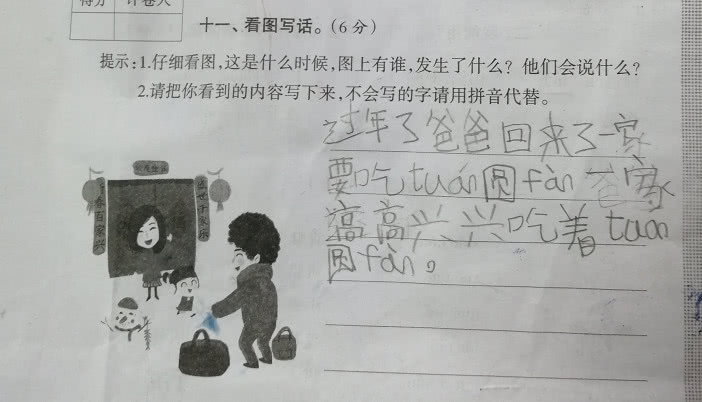 得分
评卷人
十一、看图写话。(6分)
提示:1.仔细看图,这是什么时候,图上有谁,发生了什么？他们会说什么？
2.请把你看到的内容写下来,不会写的字请用拼音代替。
过年了爸爸回来了一家
要吃tuán圆fàn一家
高高兴兴吃着tuán
圆fàn。
春百家兴